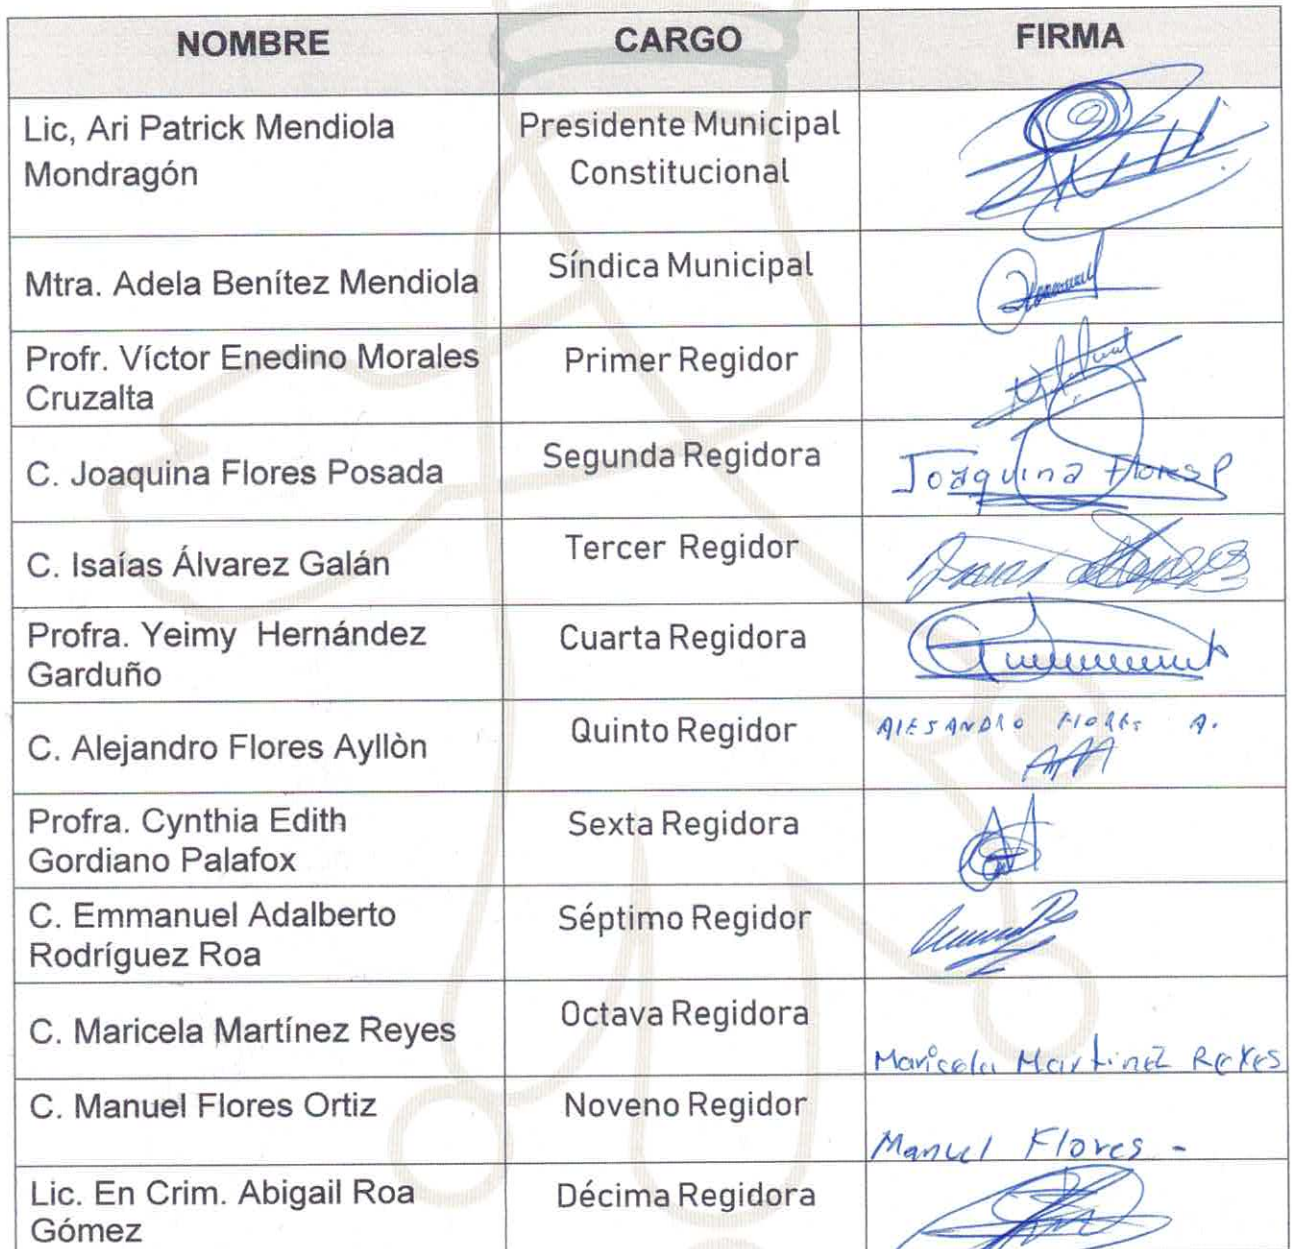 NOMBRE CARGO FIRMA
Lic, Ari Patrick Mendiola
Mondragón
Presidente Municipal
Constitucional
Mtra. Adela Benítez Mendiola
Síndica Municipal
Profr. Víctor Enedino Morales
Cruzalta
Primer Regidor
C. Joaquina Flores Posada
Segunda Regidora
Joaquina Flores P
C. Isaías Álvarez Galán
Tercer Regidor
Profra. Yeimy Hernández
Garduño
Cuarta Regidora
C. Alejandro Flores Ayllòn
Quinto Regidor
AlESANDRO FlORES A.
Profra. Cynthia Edith
Gordiano Palafox
Sexta Regidora
C. Emmanuel Adalberto
Rodríguez Roa
Séptimo Regidor
C. Maricela Martínez Reyes
Octava Regidora
Maricela Martinez Reyes
C. Manuel Flores Ortiz
Noveno Regidor
Manuel Flores -
Lic. En Crim. Abigail Roa
Gómez
Décima Regidora